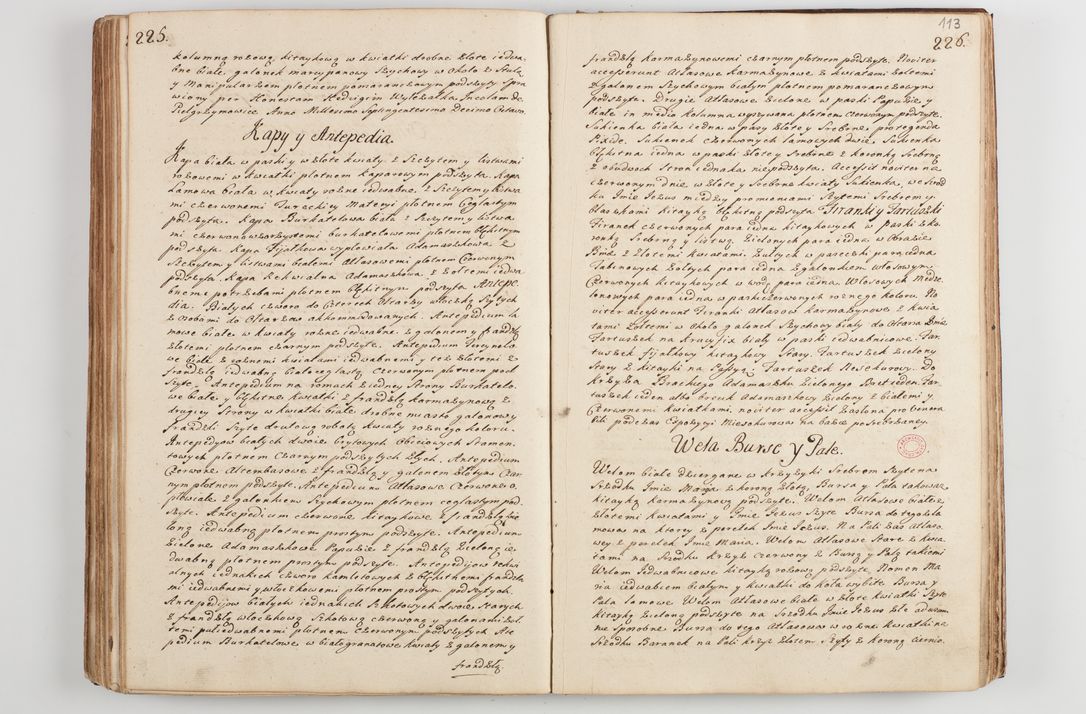 225.
kolumną rożową kitaykową w kwiatki drobne złote iedwa
bne białe, galonek marcypanowy szychowy w około z Stułą
y Manipularzem płotnem pomaranczowym podszyty spra
wiony per Honestam Hedvigim Incolam de
Pielgrzymowice Anno Millesimo Septingentesimo Decimo Octavo.
Kapy y Antepedia.
Kapa biała w paski y w złote kwiaty z Szczytem y listwami
rożowemi w kwiatki płotnem kaparowym podszyta Kapa
Lamowa biała w kwiaty rożne iedwabne, z Szczytem y listwa
mi czerwonemi Tureckiey Materyi płotnem Ceglastym
podszyta. Kapa Burkatelowa biała z Szczytem y listwa
mi czerwono burkatelowemi płotnem błękitnym
podszyta. Kapa Fijałkowa wypłowiała Adamaszkowa z
Szczytem y listwami białemi Atłasowemi płotnem Czerwonym
podszyta. Kapa Rekwialna Adamaszkowa z żołtemi iedwa
bnemi potrzebami płotnem błękitnym podszyta Antepe-
dia. Białych czworo do Czterech Ołtarzy szytych
z osobami do Ołtarzow akkommodowanych. Antepedium la
mowe białe w kwiaty rożne iedwabne z galonem y frandzlą
złotemi płotnem czarnym podszyte. Antepedium
we białe z rożnemi kwiatami iedwabnemi y też złotemi z
frandzlą iedwabną białoceglastą Czerwonym płotnem pod
szyte. Antepedium na ramach z iedney strony Burkatelo
we białe y błękitne kwiatki z frandzlą karmazynową z
drugiey strony w kwiatki białe drobne miasto galonow y
frandzli szyte robotą kwiaty rożnego koloru.
Antepedyow białych dwoie Obiciowych
towych płotnem Czarnym podszytych złych. Antepedium
Czerwone Altembasowe z frandzlą y galonem złotym Czar
nym płotnem podszyte. Antepedium Atłasowe Czerwone o
płwiałe z galonkiem szychowym płotnem ceglastym pod
szyte. Antepedium czerwone kitaykowe z frandzlą zie
loną iedwabną płotnem prostym podszyte. Antepedium
Zielone Adamaszkowe Papuzie z frandzlą Zieloną ie
dwabną płotnem prostym podszyte. Antepedijow rekwi
alnych iednakich czworo kamlotowych z błękitnemi frandzla
mi iedwabnemi y włoczkowemi płotnem prostym podszytych.
Antepedijow białych iednakich Szkotowych dwoie Starych
z frandzlą włoczkową Szkotową czerwoną y galonami żoł
temi pułiedwabnemi płotnem Czerwonym podszytych Ate
pedium Burkatelowe w białogranatowe kwiaty z galonem y
frandzlą
113
226.
frandzlą karmazynowemi czarnym płotnem podszyte. Noviter
accesserunt Atłasowe karmazynowe z kwiatami żołtemi
z galonem Szychowym białym płotnem pomaranczowym
podszyte. Drugie Atłasowe zielone w paski Papuzie y
białe in medio kolumna wyszywana płotnem Czerwonym podszyte.
Sukienka biała iedna w pasy złote y srebrne, pro tegenda
Pixide. Sukienek Czerwonych lamowych dwie, Sukienka
błękitna iedna w paski złote y srebrne z koronką srebrną
z obudwoch stron iednaka niepodszyta. Accessit noviter na
czerwonym dnie w złote y srebrne kwiaty Sukienka, we srod
ku Jmie Jezus miedzy promieniami szytemi Srebrem y
blaszkami kitayką błękitną podszyta. Firanki y Fartuszki
Firanek Czerwonych para iedna kitaykowych w paski z ko
ronką srebrną y listwą. Zielonych para iedna w Obrazie
Bmæ z złotemi kwiatami. Żułtych w pareczki para iedna
Tabinowych żołtych para iedna z galonkiem włosowym.
Czerwonych kitaykowych w wodę para iedna. Włosowych Mede-
lonowych para iedna w paski czerwonych rożnego koloru. No
viter accesserunt Firanki Atłasow karmazynowe z kwia
tami żołtemi w około galonek Szychowy biały do Ołtarza Bmæ
Fartuszek na Krucyfix biały w paski iedwabnicowe. Far
tuszek fijałkowy kitaykowy Stary. Fartuszek Zielony
Stary z kitayki na Passyą. Fartuszek Meschurowy. Do
krzyża Brackiego Adamaszku Zielonego Bret ieden. Far
tuszek ieden albo breuk Adamaszkowy Zielony z białemi y
Czerwonemi kwiatkami, noviter accessit Zasłona pro Venera
bili podczas Expozycyi Mieschurowa na bakce posrebrzaney.
Weła Bursę y Palę.
Wełom białe dziergane w krzyżyki Srebrem szytena
Srzodku Jmie Marya z koroną złotą, Bursa y Pala takoważ
kitayką karmazynową podszyte. Welom Atłasowe białe z
złotemi kwiatami y Jmie Jezus szyte Bursa do tego zla
mowa na ktorey z perełek Jmie Jezus. Na Pali zas atłaso
wey z perełek Jmie Maria. Welom Atłasowe Stare z kwia
tami na srzodku krzyż czerwony z Bursą y Palą takiemi
Welom Jedwabnicowe kitayką rożową podszyte Nomen Ma
ria iedwabiem białym y kwiatki do koła wybite Bursa y
Pala lamowe. Welom Atłasowe białe w złote kwiatki szyte
kitayką Zieloną podszyte na srzodku Jmie Jezus złe
nie sposobne Bursa do tego Atłasowa w rożne kwiatki na
srzodku Baranek na Pali krzyż złotem szyty z koroną ciernio.